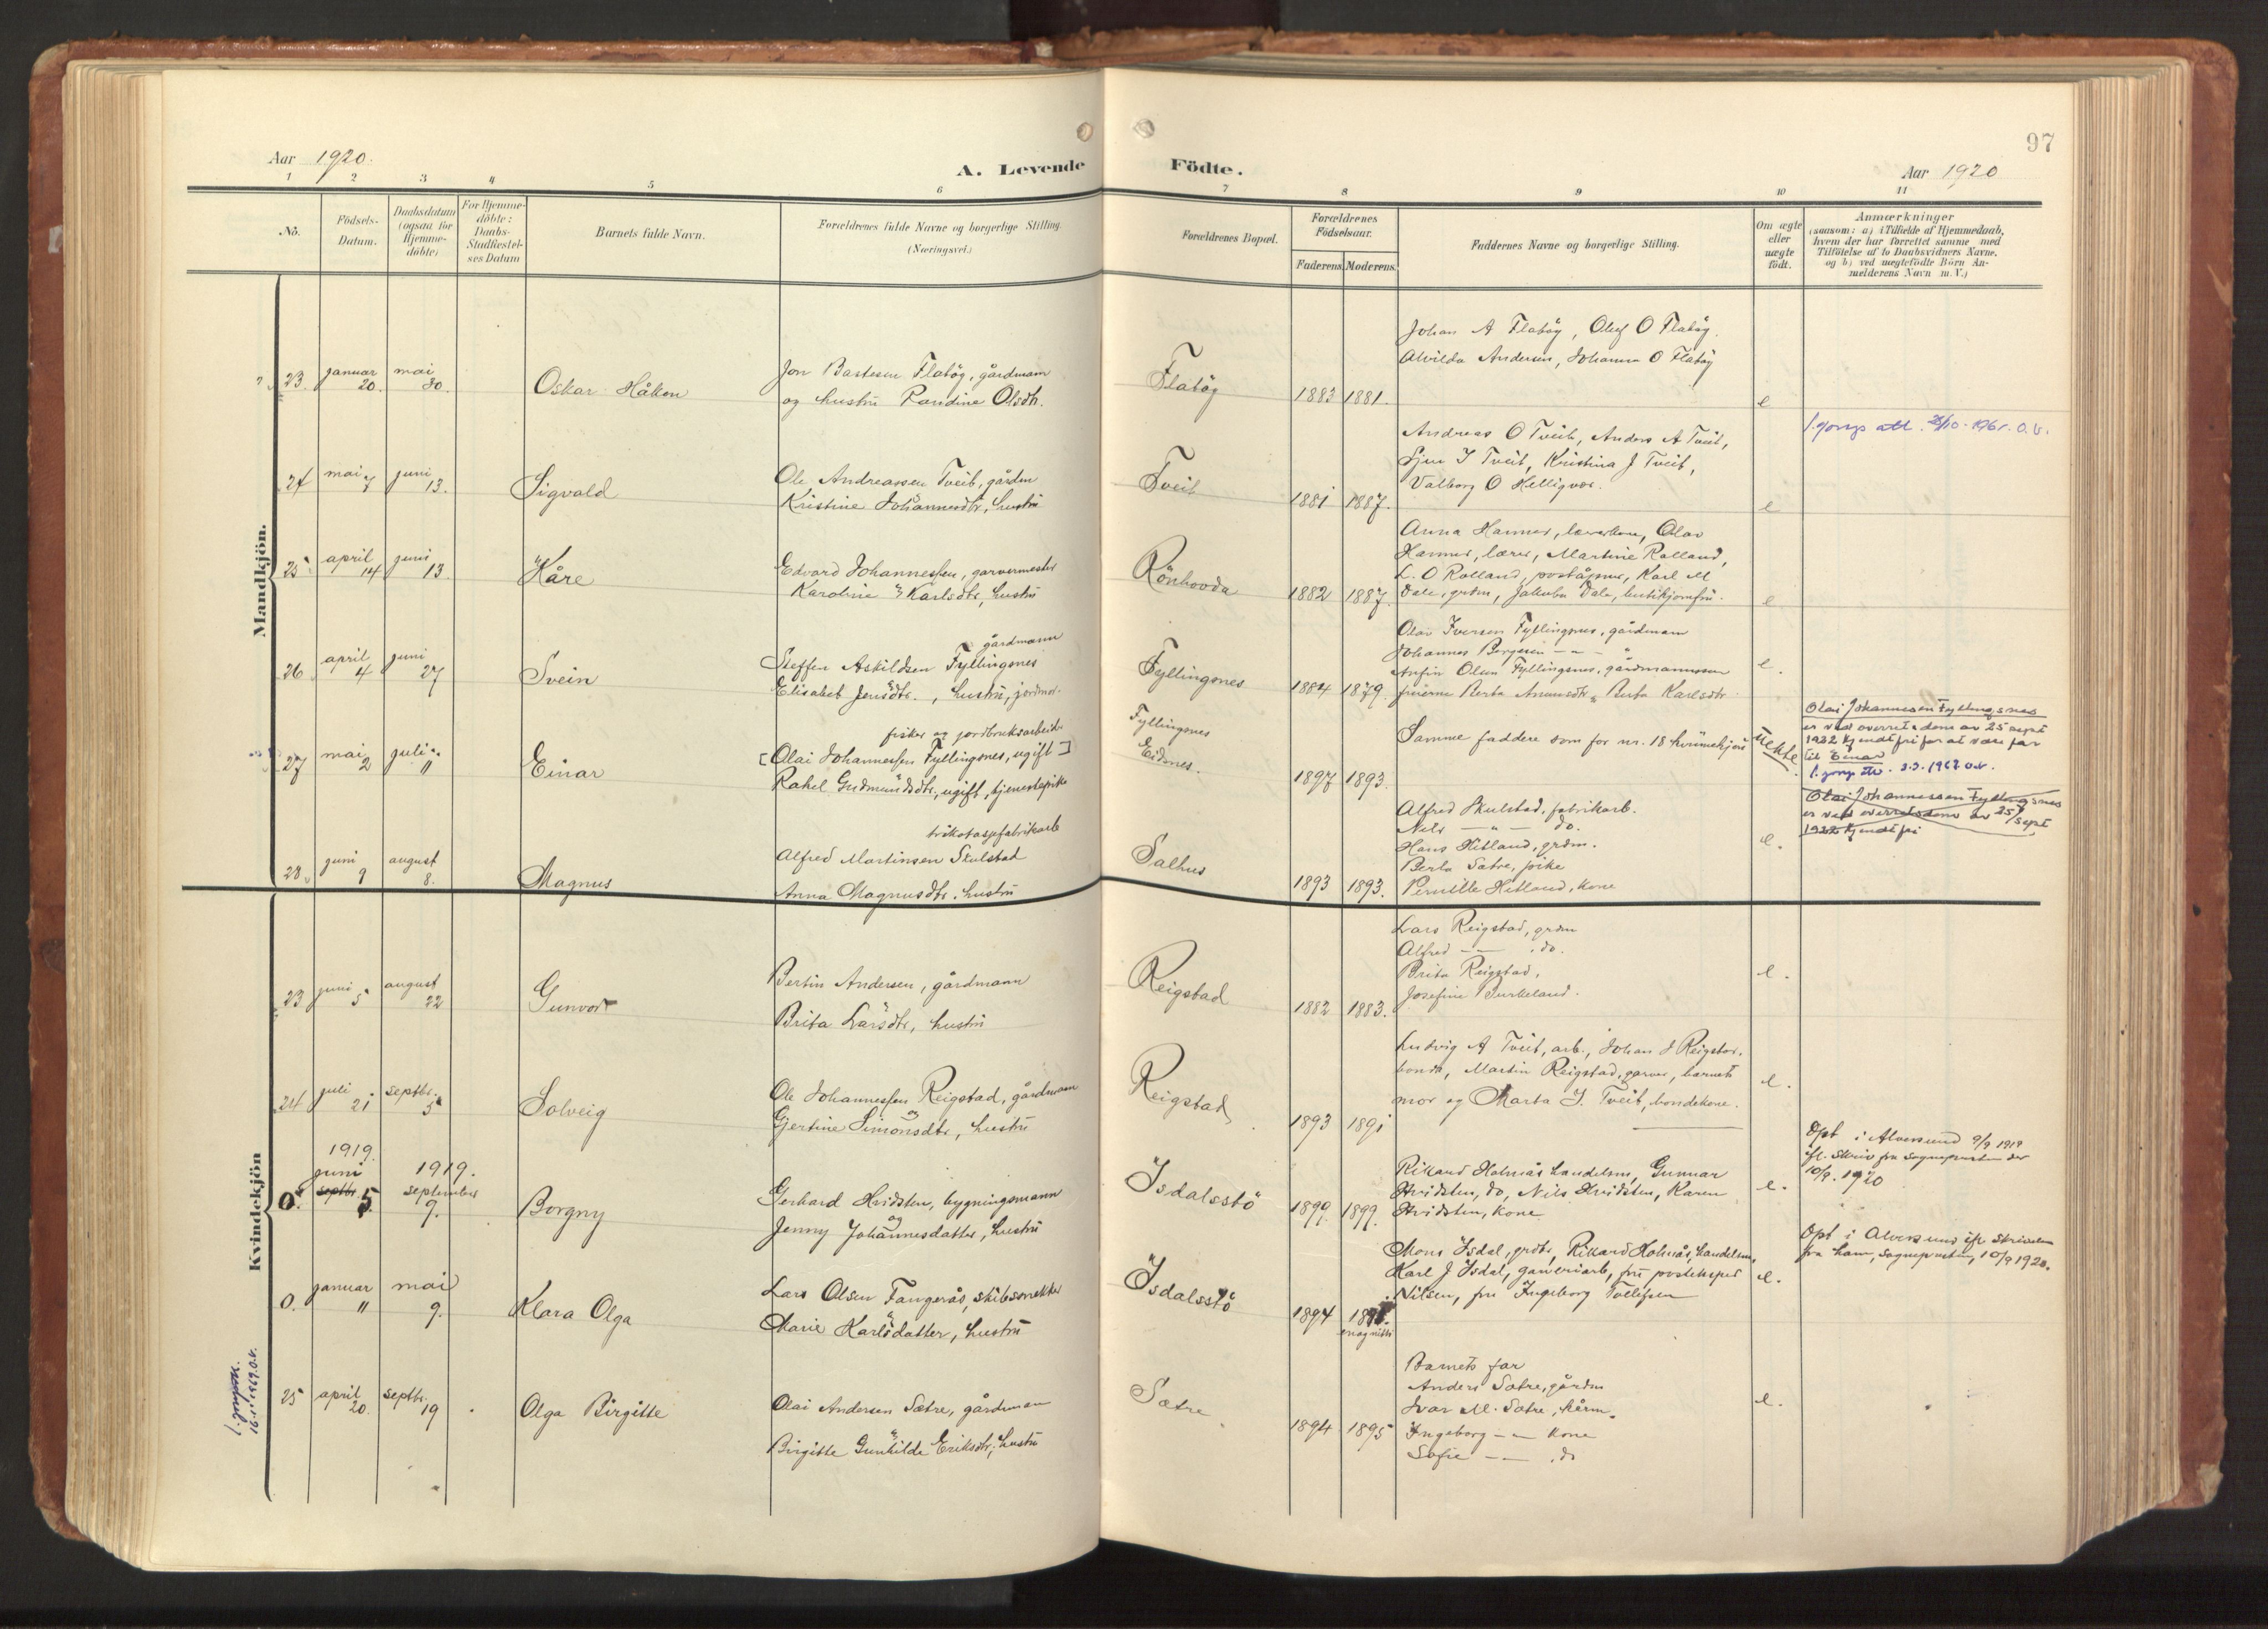 97
Aar 1920.
A. Levende
Födte.
Aar 1920
1 2 3 4 5 6 7 8 9 10 11
No.
Födsels-
Datum.
Daabsdatum
(ogsaa för
Hjemme-
döbte)
For Hjemme-
döbte:
Daabs-
Stadfæstel-
ses Datum
Barnets fulde Navn.
Forældrenes fulde Navne og borgerlige Stilling.
(Næringsvei.)
Forældrenes Bopæl.
Forældrenes
Födselsaar.
Faderens. Moderens.
Faddernes Navne og borgerlige Stilling.
Om ægte
eller
uægte
födt.
Anmærkninger
(saasom: a) i Tilfælde af Hjemmedaab,
hvem der har forrettet samme med
Tilföielse af to Daabsvidners Navne.
og b) ved uægtefödte Börn An-
melderens Navn m. V.)
Mandkjön.
23. januar 20. mai 30.
Oskar Håkon
Jon Bastesen Flatöy, gårdmann
og hustru Randine Olsdtr.
Flatöy
1883 1881.
Johan A Flatöy, Oluf O Flatöy.
Alvilda Andersen, Johanna O Flatöy
e
24 mai 7 juni 13.
Sigvald
Ole Andreassen Tveit, gårdm
Kristine Johannesdtr, hustru
Tveit
1881 1887.
Andreas O Tveit, Anders A Tveit,
J Tveit, Kristina J Tveit,
Valborg O Helligvær.
e
25 april 14 juni 13
Kåre
Edvard Johannessen, garvermester
Karoline Karlsdtr, hustru
Rönhovda
1882 1887.
Anna Hannes, Olav
Hannes, lærer, Martine Rolland,
L. O Rolland, poståpner, Karl M
Dale, grdm, Jakoba Dale,
e
26 april 4 juni 27
Svein
gårdmann
Steffen Askildsen Fyllingsnes
Elisabet Jensdtr., hustru, jordmor.
Fyllingsnes
1884 1879.
Olav Iversen Fyllingsnes, gårdmann
Johannes Börgesen — " — "
Olsen Fyllingsnes, gårdmannssøn
Berta Karlsdtr
e.
27 mai 2 juli 11
Einar
fisker og jordbruksarbeider
[Olai Johannessen Fyllingsnes, ugift]
Rakel Gudmundsdtr., ugift, tjenestepike
Fyllingsnes
Eidsnes.
1897 1893.
Samme faddere som for nr. 18 kvinnekjön
Uekte.
Olai Johannesen Fyllingsnes
er ved overrets dom av 25 sept
1922 kjendt fri for at være far
til Einar
Olai Johannessen Fyllingsnes
er ved overretsdom av 25/sept
1922 kjendt fri
28 juni 9 august 8.
Magnus
trikotasjefabrikarb
Alfred Martinsen Skulstad
Anna Magnusdtr. hustru
Salhus
1893 1893.
Alfred Skulstad, fabrikarb.
Nils — " — do.
Hans Hitland, grdm.
Berta Sætre, pike
Pernille Hitland, kone
e.
Kvindekjön
23 juni 5 august 22
Gunvor
Bertin Andersen, gårdmann
Brita Larsdtr, hustru
Reigstad
1882 1883.
Lars Reigstad, grdm
Alfred — " — do.
Brita Reigstad,
Josefine Burkeland.
e.
24 juli 21 septbr. 5
Solveig
Ole Johannessen Reigstad, gårdmann
og
Gjertine Simonsdtr, hustru
Reigstad
1893 1891
Ludvig A Tveit, arb., Johan J Reigstad.
bonde, Martin Reigstad, garver, barnets
mor og Marta J. Tveit, bondekone.
e.
0. 1919. juni septbr. 5. 1919. september 9.
Borgny
Gerhard Hvidsten, bygningsmann
og
Jenny Johannesdatter, hustru
Isdalsstö
1899. 1899.
Rikard Holmås handelsm, Gunnar
Hvidsten, do, Nils Hvidsten, Karen
Hvidsten, kone
e.
Dpt i Alversund 9/9 1919
ifl. skriv fra sognepresten der
10/9. 1920
0. januar 11 mai 9.
Klara Olga
Lars Olsen Fangerås,
Marie Karlsdatter, hustru
Isdalsstö
1894
Mons Isdal, Rikard Holmås, handelsm,
Karl J Isdal, garveriarb, fru
Nilsen, fru Ingeborg Tollefsen
e.
Dpt i Alversund ifl skrivelse
fra sammes sogneprest, 10/9 1920.
25 april 20. septbr. 19
Olga Birgitte
Olai Andersen Sætre, gårdmann
Birgitte Gunhilde Eriksdtr, hustru
Sætre
1894 1895
Barnets far
Anders Sætre, gårdm
Ivar M. Sætre, kårm.
Ingeborg — " — kone
Sofie — " — do
e.
16.1.1969. O.V.